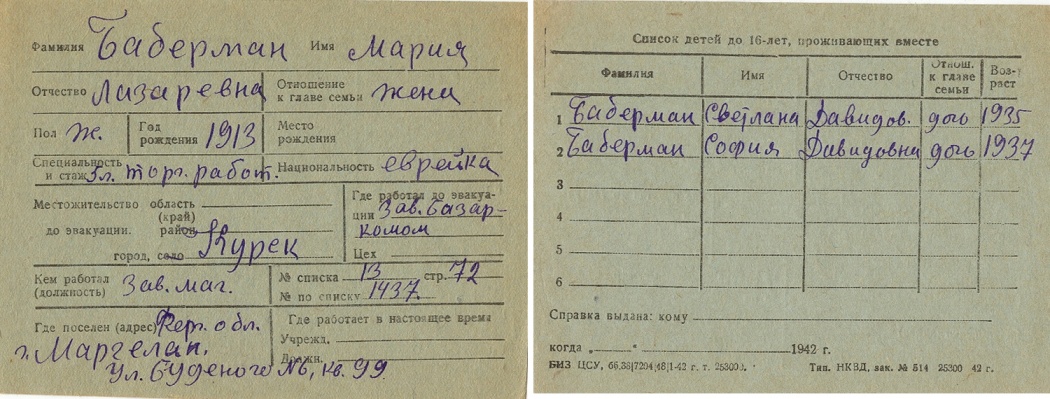 Фамилия Баберман Имя Мария
Отчество Лазаревна Отношение к главе семьи жена
Пол Ж. Год рождения 1913 Место рождения
Специальность и стаж 3л. торг. работ. Национальность еврейка
Местожительство область
(край)
до эвакуации. район
город, село Курск
Где работал до эвакуа-
ции Зав. базар-
комом
Цех
Кем работал (должность) Зав. маг.
№ списка 13 стр. 72
№ по списку 1437
Где поселен (адрес) Ферг. обл.
г. Маргелан.
ул. Буденого №, кв. 99
Где работает в настоящее время
Учрежд.
Должн.
Список детей до 16-лет, проживающих вместе
Фамилия Имя Отчество Отнош. к главе семьи Воз-раст
1 Баберман Светлана Давидов. дочь 1935
2 Баберман София Давидовна дочь 1937
3
4
5
6
Справка выдана: кому
когда „ “ 1942 г.
БИЗ ЦСУ, 65,38|7294|48|1-42 г. т. 25300. Тип. НКВД, зак. № 514 25300 42 г.